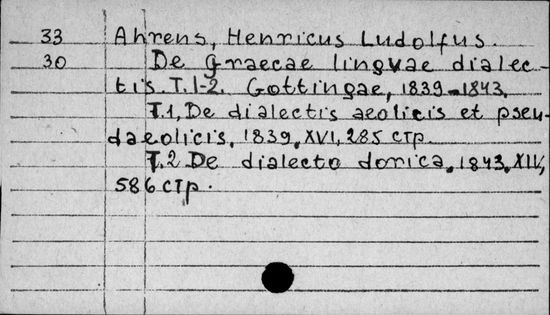 33 Ahrens, Henricus Ludolfus.
30 De Graecae lingvae dialec-
tis. T. 1-2. Gottingae, 1839-1843.
T.1, De dialectis aeolicis et pseu-
daeolicis. 1839. XVI, 285 стр.
T.2 De dialecto dorica. 1843. XIV,
586 стр.